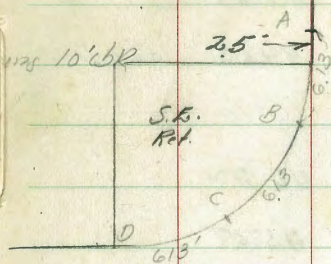 A
25'
10' cbR
6.13
S.E.
Ret.
B
6.13
C
D
613'